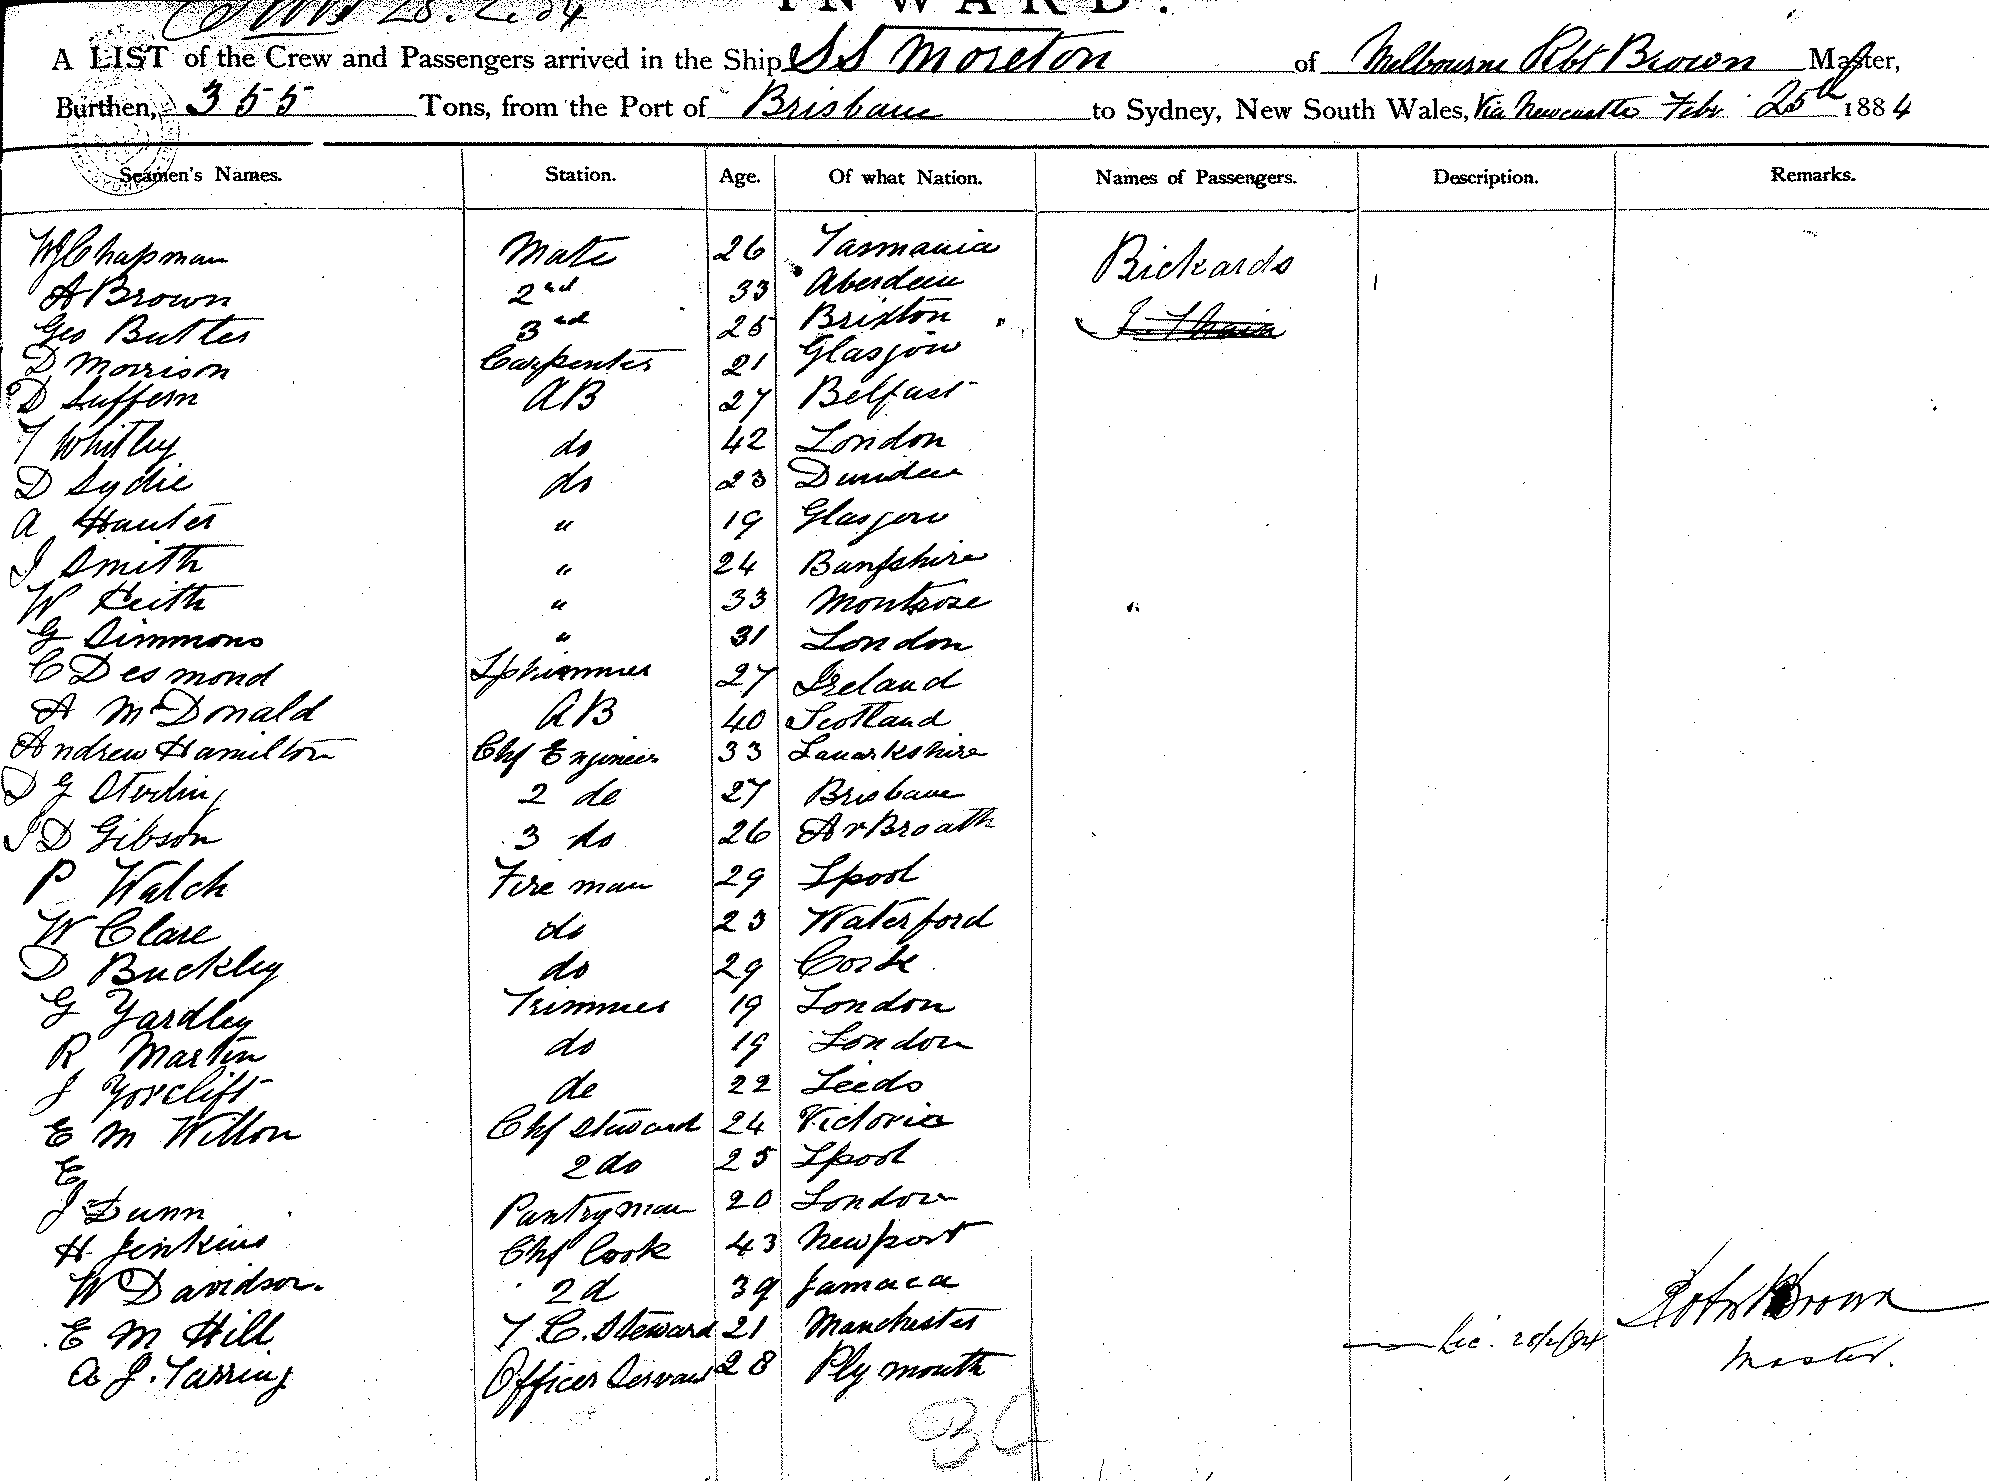 INWARD.
A LIST of the Crew and Passengers arrived in the Ship SS Moreton of Melbourne Robt Brown Master,
Burthen, 355 Tons, from the Port of Brisbane to Sydney, New South Wales, Via Newcastle Feby 25th 1884
Seamen's Names. Station. Age. Of what Nation. Names of Passengers. Description. Remarks.
WJ Chapman Mate 26 Tasmania Rickards
A Brown 2nd 33 Aberdeen
Geo Butler 3rd 25 Brixton
D Morrison Carpenter 21 Glasgow
D Suffern AB 27 Belfast
T Whitley do 42 London
D Sydie do 23 Dundee
A Hunter " 19 Glasgow
J Smith " 24 Banfshire
W Keith " 33 Montrose
G Simmons " 31 London
C Desmond 27 Ireland
A McDonald AB 40 Scotland
Andrew Hamilton Chf Engineer 33 Lanarkshire
D G Sterling 2 do 27 Brisbane
J D Gibson 3 do 26 ArBroath
P Walch Fire man 29 Lpool
W Clare do 23 Waterford
D Buckley do 29 Cork
G Yardley Trimmer 19 London
R Martin do 19 London
J Yorclift do 22 Leeds
E M Wilton Chf Steward 24 Victoria
E 2 do 25 Lpool
J Dunn Pantryman 20 London
H Jenkins Chf Cook 43 Newport
W Davidson. 2d 39 Jamaca
E M Hill T C. Steward 21 Manchester
A J. Tarring Officer Servant 28 Plymouth
Robt Brown
Master.